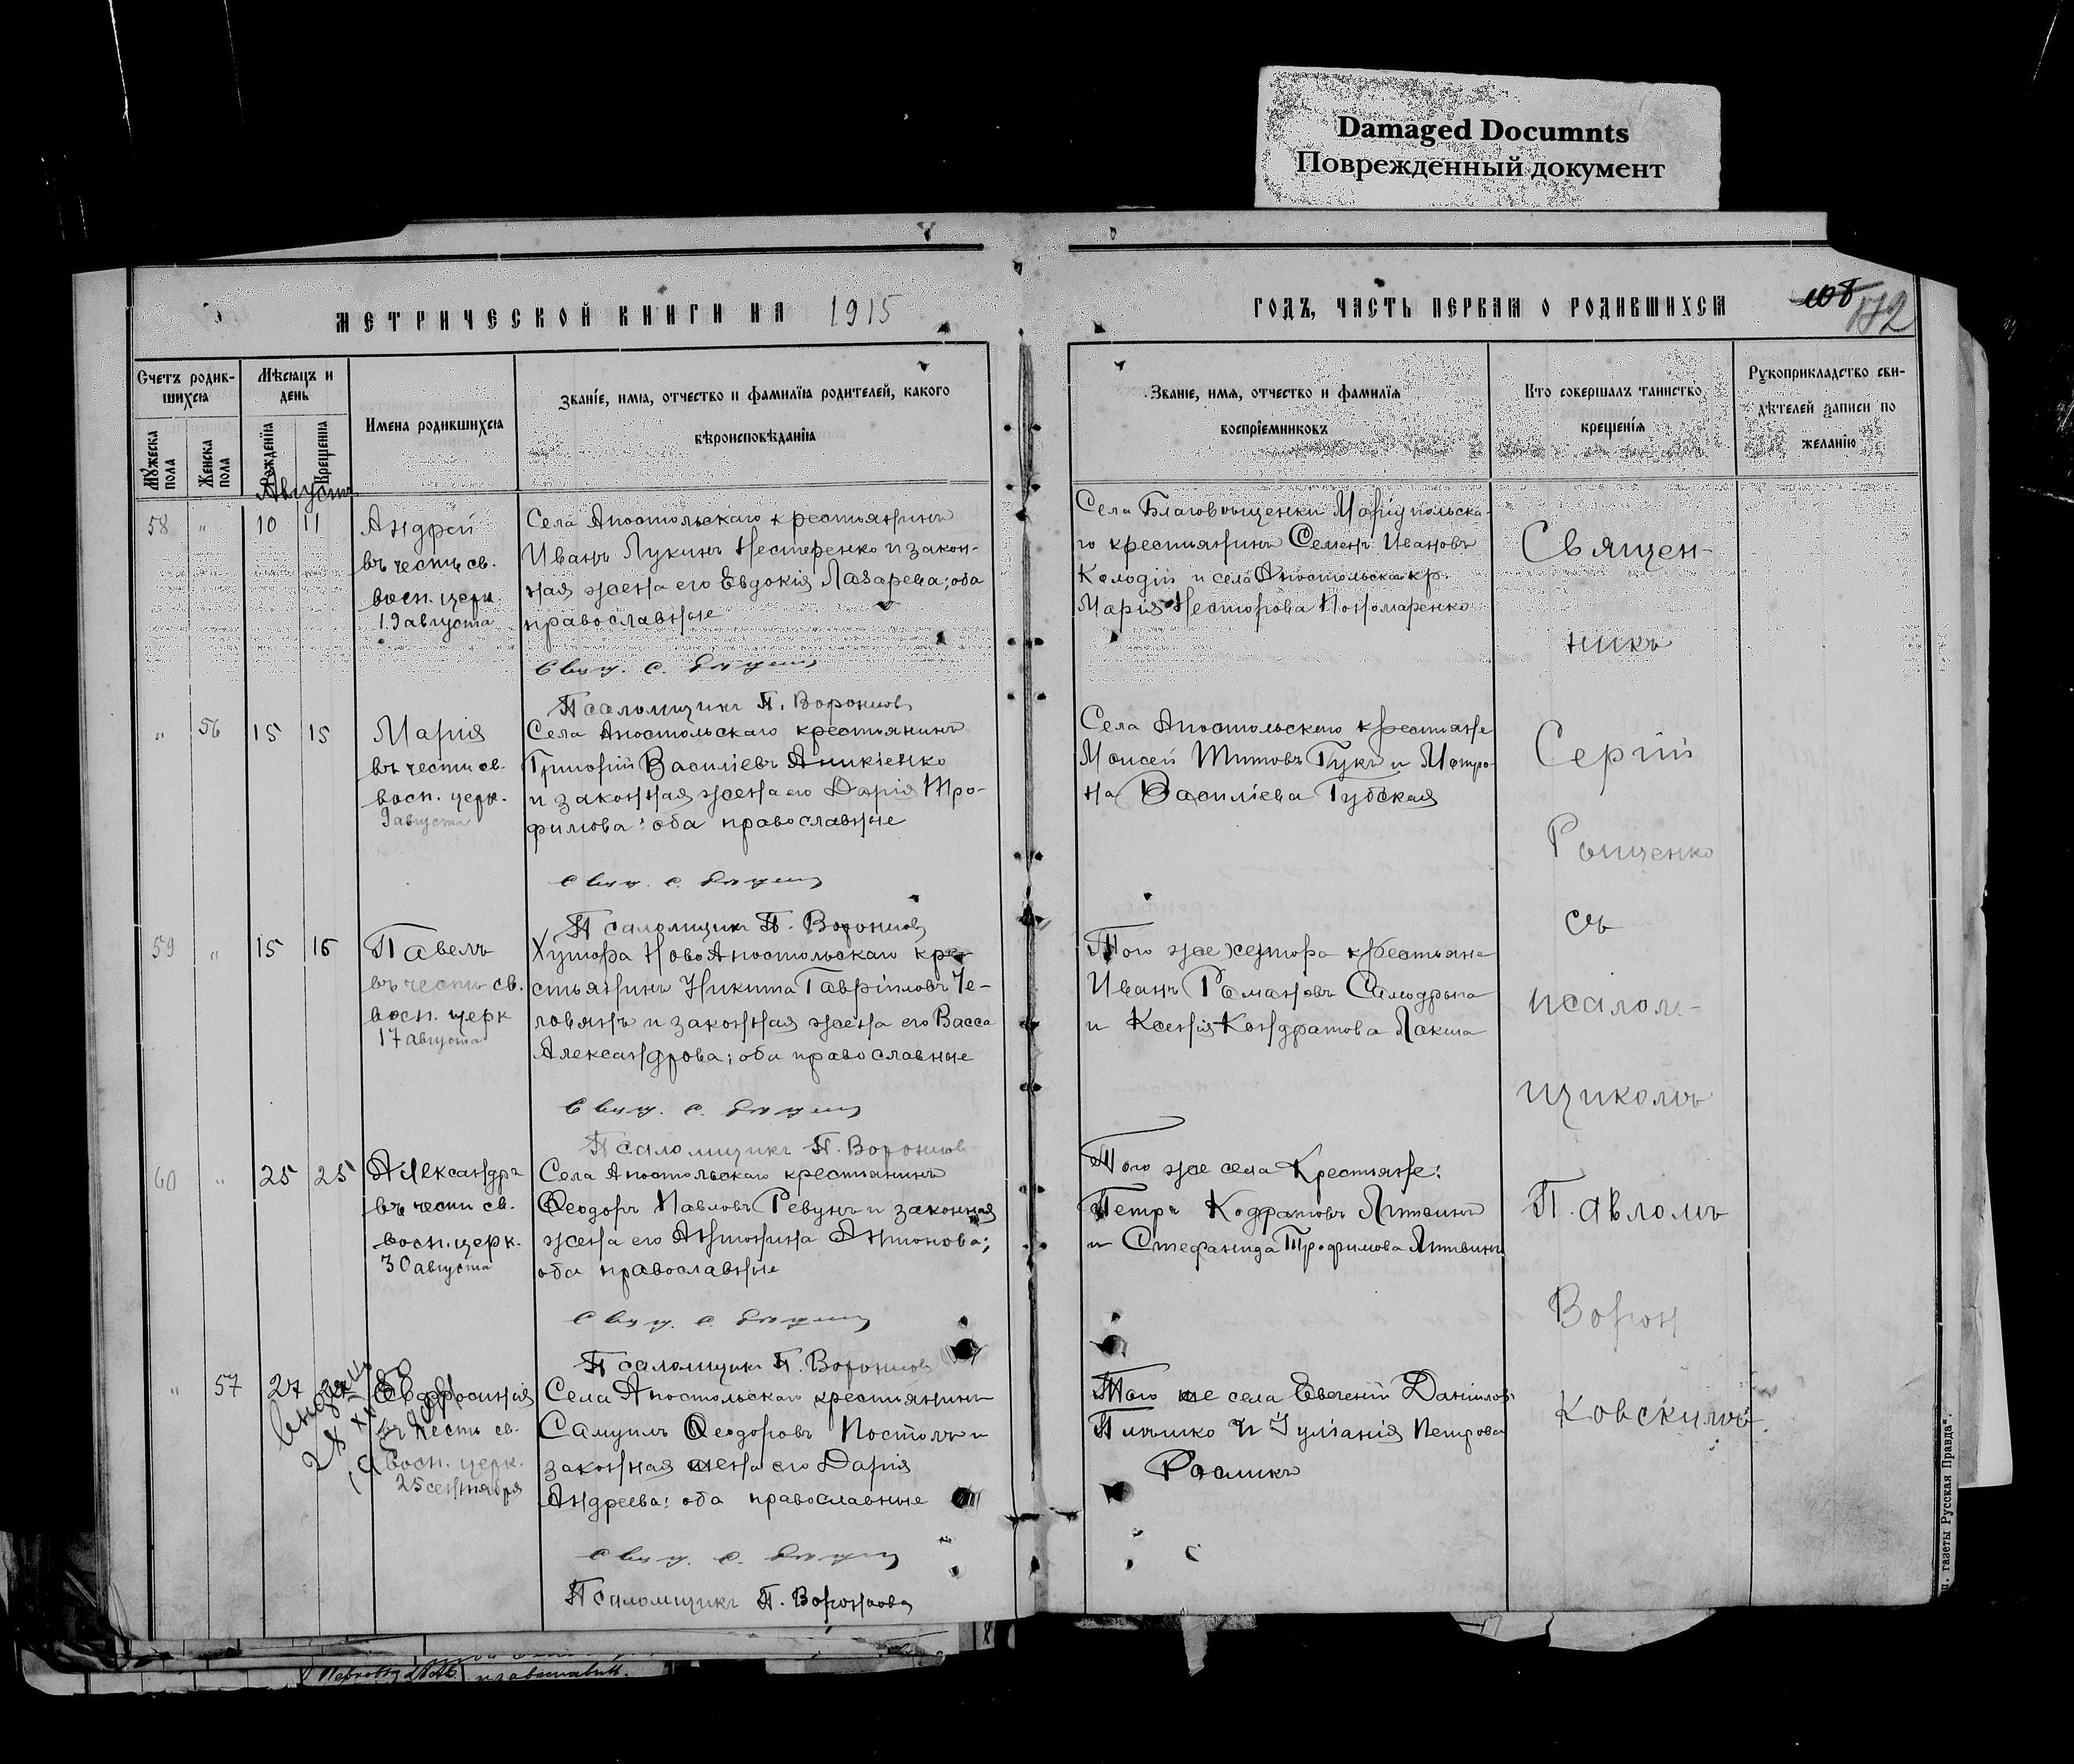 Damaged Documnts
Поврежденный документ
МЕТРИЧЕСКОЙ КНИГИ НА 1915
ГОДЪ, ЧАСТЬ ПЕРВАЯ О РОДИВШИХСЯ
108
Счетъ родив-
шихся
Мужеска
пола
Женска
пола
Мѣсяцъ и
день
Рожденія
Крещенія
Имена родившихся
Званіе, имя, отчество и фамилія родителей, какого
вѣроисповѣданія
Званіе, имя, отчество и фамилія
воспріемниковъ
Кто совершалъ таинство
крещенія
Рукоприкладство сви-
дѣтелей записи по
желанію
Августъ
58 " 10 11
Андрей
въ честь св.
восп. церк.
19 августа
Села Апостольскаго крестьянинъ
Иванъ Лукинъ Нестеренко и закон-
ная жена его Евдокія Лазарева; оба
православные
Свящ. С.
Псаломщикъ П.
Села Благовѣщенки Маріупольска-
го крестьянинъ Семенъ Ивановъ
Колодій и села Апостольска кр.
Марія Несторова Пономаренко
" 56 15 15
Марія
въ честь св.
восп. церк.
9 августа
Села Апостольскаго крестьянинъ
Григорій Василіевъ Аникіенко
и законная жена его Дарія Тро-
фимова: оба православные
Свящ. С.
Псаломщикъ П.
Села Апостольскаго крестьяне
Моисей Титовъ Гукъ и Матро-
на Василіева Губская
59 " 15 16
Павелъ
въ честь св.
восп. церк
17 августа
Хутора НовоАпостольскаго кре-
стьянинъ Никита Гавріиловъ Че-
ловянъ и законная жена его Васса
Александрова; оба православные
Свящ. С.
Псаломщикъ П.
Того же хутора крестьяне
Иванъ Романовъ Самодрыга
и Ксенія Кондратова Лакша
60 " 25 25
Александръ
въ честь св.
восп. церк.
30 августа
Села Апостольскаго крестьянинъ
Ѳеодоръ Павловъ Ревунъ и законная
жена его Антонина Антонова;
оба православные
Свящ. С.
Псаломщикъ П.
Того же села Крестьяне:
Петръ Кодратовъ Литвинъ
и Стефанида Трофимова Литвинъ
" 57 27
Евфросинія
въ честь св.
восп. церк.
25 сентября
Села Апостольскаго крестьянинъ
Самуилъ Ѳеодоровъ Постолъ и
законная жена его Дарія
Андреева: оба православные
Свящ. С.
Псаломщикъ П.
Того же села Евгеній Даніилов
и Іуліанія Петрова
Рослик
Священ-
никъ
Сергій
Рощенко
съ
псалом-
щикомъ
Павломъ
Ворон
ковскимъ
газеты Русская Правда".